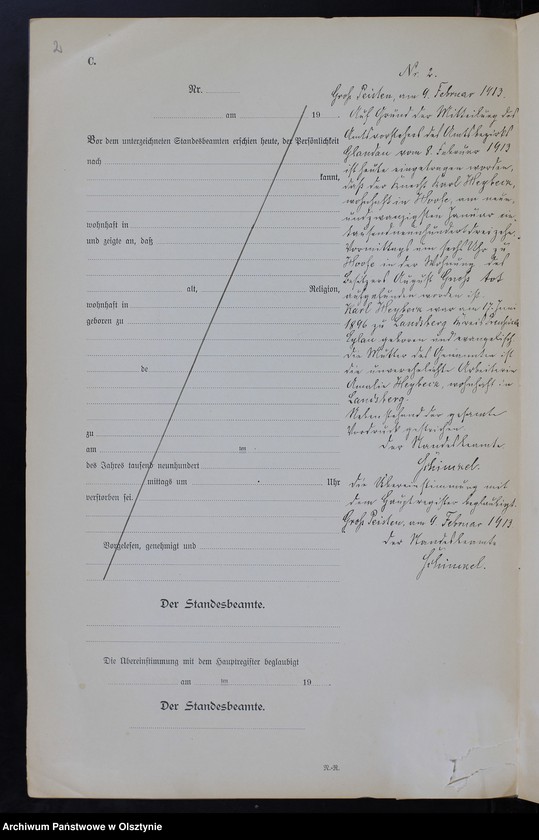 2
C.
Nr.
am 19
Vor dem unterzeichneten Standesbeamten erschien heute, der Persönlichkeit
nach
kannt,
wohnhaft in
und zeigte an, daß
alt, Religion,
wohnhaft in
geboren zu
de
zu
am ten
des Jahres tausend neunhundert
mittags um Uhr
verstorben sei.
Vorgelesen, genehmigt und
Der Standesbeamte.
Die Übereinstimmung mit dem Hauptregister beglaubigt
am ten 19
Der Standesbeamte.
N.-R.
Nr. 2.
Groß Peisten, am 9. Februar 1913.
Auf Grund der Mitteilung des
Amtsvorstehers des Amtsbezirks
Glandau vom 8. Februar 1913
ist heute eingetragen worden,
daß der Knecht Karl
wohnhaft in am neun
undzwanzigsten Januar ein
tausendneunhundertdreizehn
Vormittags um sechs Uhr zu
in der Wohnung des
Besitzers August tot
aufgefunden worden ist.
Karl war am 17. Juni
1896 zu Landsberg Kreis Preußisch
Eylau geboren und evangelisch
die Mutter des Genannten ist
die unverehelichte Arbeiterin
Amalie wohnhaft in
Landsberg.
Nebenstehend der gesamte
Vordruck gestrichen.
Der Standesbeamte.
Schimkel.
Die Übereinstimmung mit
dem Hauptregister beglaubigt.
Groß Peisten, am 9. Februar 1913
Der Standesbeamte
Schimkel.
Archiwum Państwowe w Olsztynie